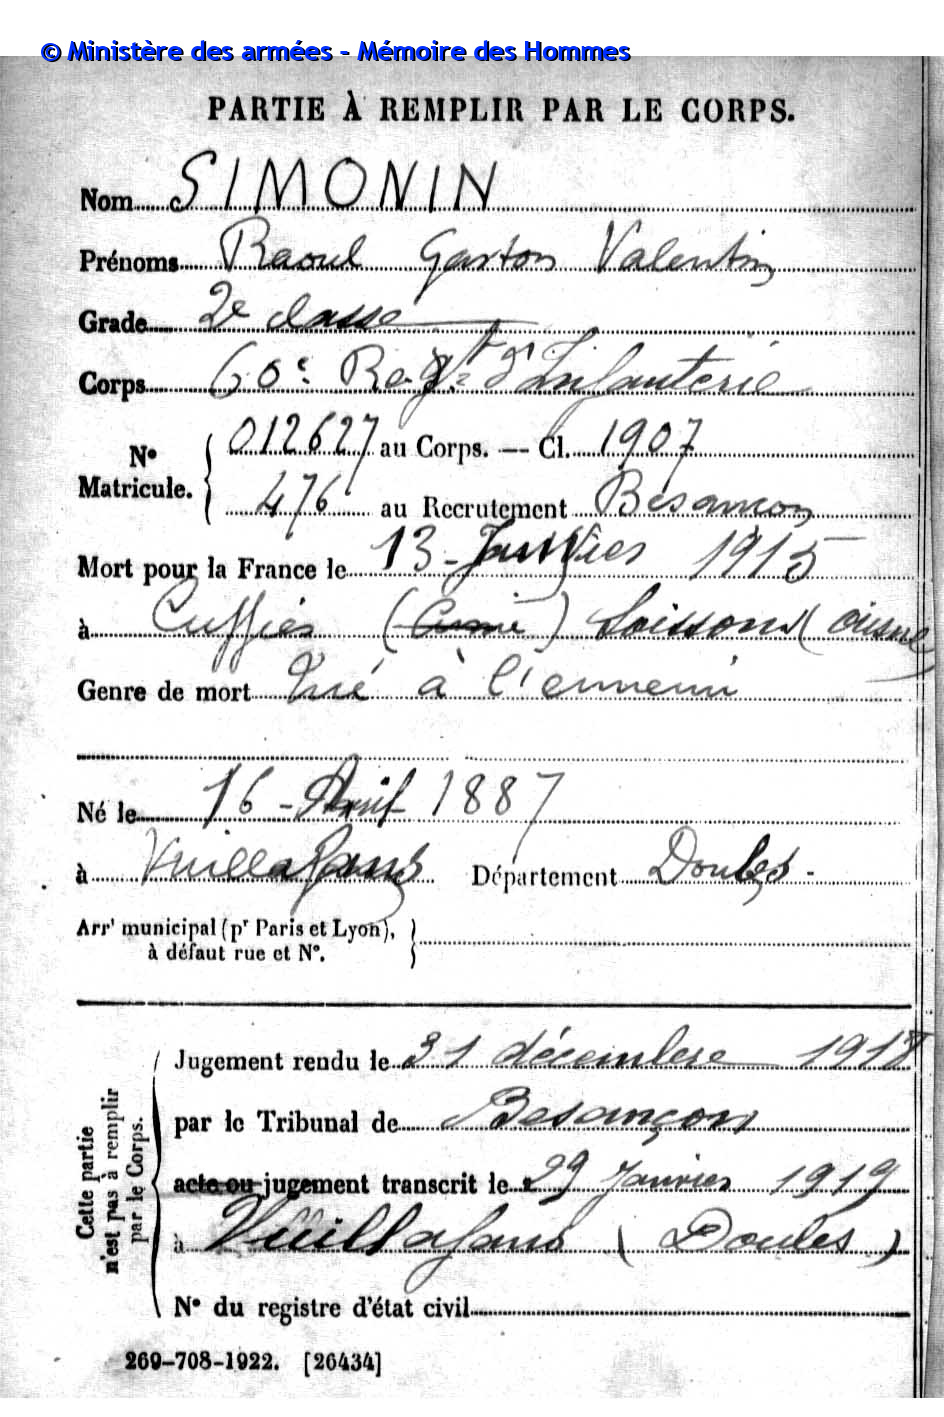 © Ministère des armées - Mémoire des Hommes
PARTIE À REMPLIR PAR LE CORPS.
Nom SIMONIN
Prénoms Raoul Gaston Valentin
Grade 2e classe
Corps 60e Regt d'Infanterie
No Matricule. 012627 au Corps. — Cl. 1907
476 au Recrutement Besançon
Mort pour la France le 13 Janvier 1915
à Cuffies () Soissons (Aisne)
Genre de mort Tué à l'ennemi
Né le 16 Avril 1887
à Vuillafans Département Doubs
Arrt municipal (pr Paris et Lyon),
à défaut rue et N°.
Cette partie
n'est pas à remplir
par le Corps.
Jugement rendu le 31 décembre 1918
par le Tribunal de Besançon
acte ou jugement transcrit le 29 Janvier 1919
à Vuillafans (Doubs)
N° du registre d'état civil
269-708-1922. [26434]